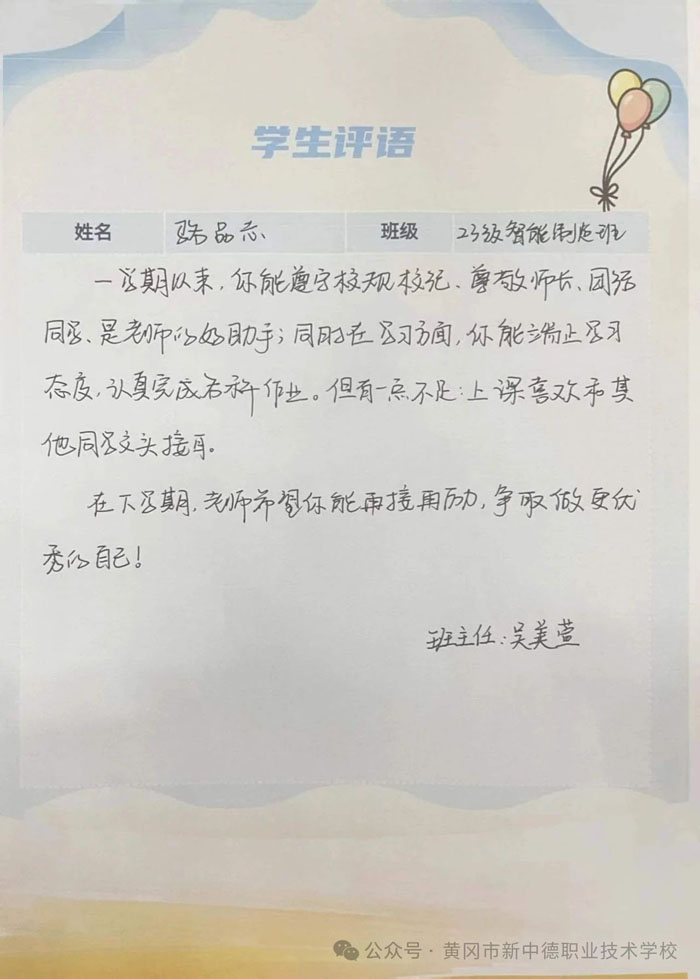 学生评语
姓名 骆品志 班级 23级智能制造班
一学期以来,你能遵守校规校纪、尊敬师长、团结
同学、是老师的好助手;同时在学习方面,你能端正学习
态度,认真完成各科作业。但有一点不足:上课喜欢和其
他同学交头接耳。
在下学期,老师希望你能再接再厉,争取做更优
秀的自己!
班主任:吴美萱
公众号·黄冈市新中德职业技术学校